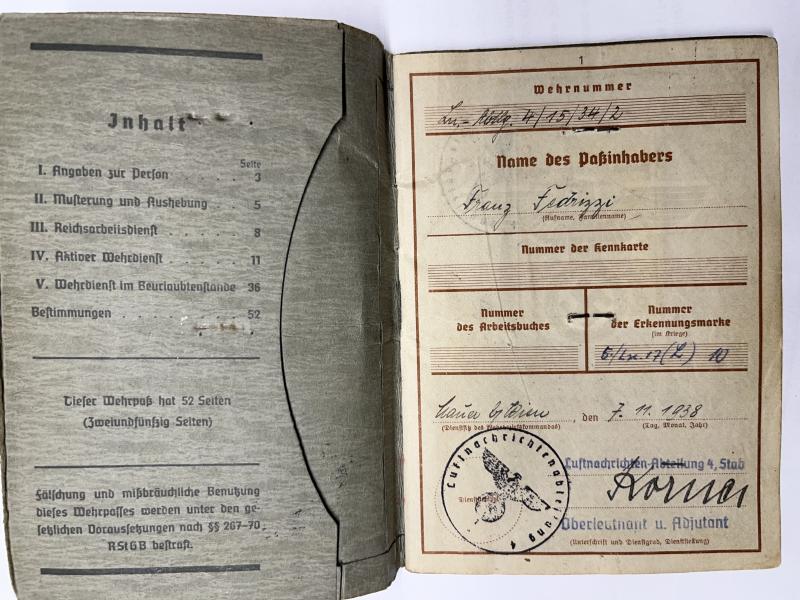 Inhalt
Seite
I. Angaben zur Person . . . . 3
II. Musterung und Aushebung . . 5
III. Reichsarbeitsdienst . . . . 8
IV. Aktiver Wehrdienst . . . . 11
V. Wehrdienst im Beurlaubtenstande 36
Bestimmungen . . . . . 52
Dieser Wehrpaß hat 52 Seiten
(Zweiundfünfzig Seiten)
Fälschung und mißbräuchliche Benutzung
dieses Wehrpasses werden unter den ge-
setzlichen Voraussetzungen nach §§ 267-70
RStGB bestraft.
1
Wehrnummer
Ln.- 4/15/34/2
Name des Paßinhabers
Franz Fedrizzi
(Rufname, Familienname)
Nummer der Kennkarte
Nummer
des Arbeitsbuches
Nummer
der Erkennungsmarke
(im Kriege)
17(L) 10
Mauer b/Wien, den 7.11.1938
(Dienstsitz des Wehrbezirkskommandos) (Tag, Monat, Jahr)
Luftnachrichtenabteilung 4
Luftnachrichten-Abteilung 4, Stab
Oberleutnant u. Adjutant
(Unterschrift und Dienstgrad, Dienststellung)